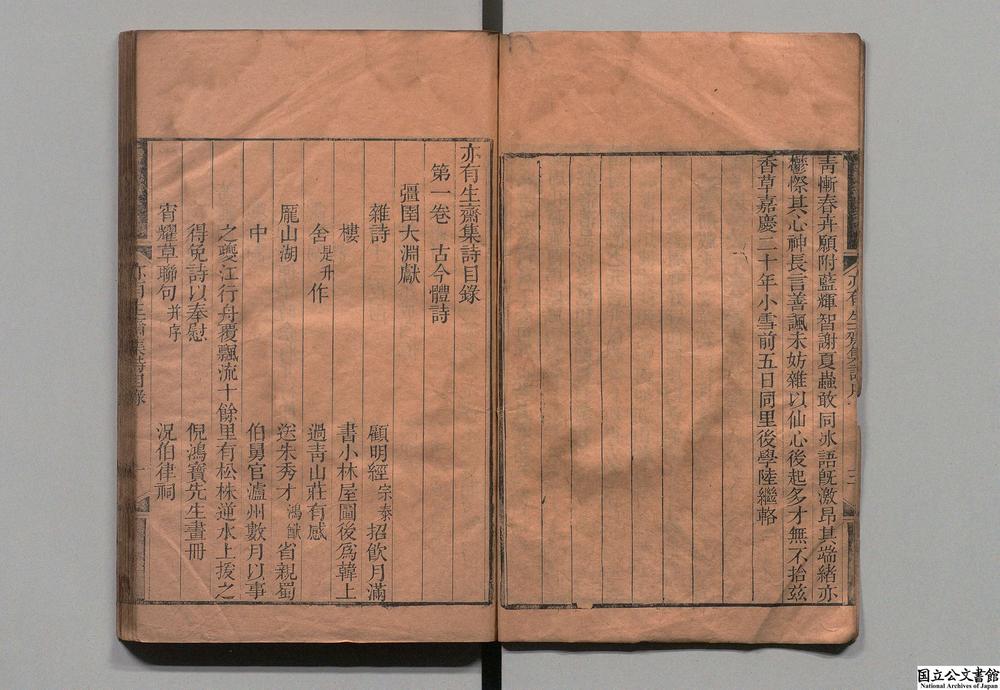 青慚春卉願附藍輝智謝夏蟲敢同冰語既激昂其端緒亦
鬱傺其心神長言善諷未妨雜以仙心後起多才無不拾茲
香草嘉慶二十年小雪前五日同里後學陸繼輅
亦有生齋集詩序
三
亦有生齋集詩目錄
第一卷 古今體詩
彊圉大淵獻
雜詩 顧明經宗泰招飲月滿
樓 書小林屋圖後為韓上
舍是升作 過青山莊有感
厖山湖 送朱秀才鴻猷省親蜀
中 伯舅官瀘州數月以事
之夔江行舟覆飄流十餘里有松株逆水上援之
得免詩以奉慰 倪鴻寶先生畫冊
宵燿草聯句并序 況伯律祠
亦有生齋集詩目錄
一
国立公文書館
National Archives of Japan